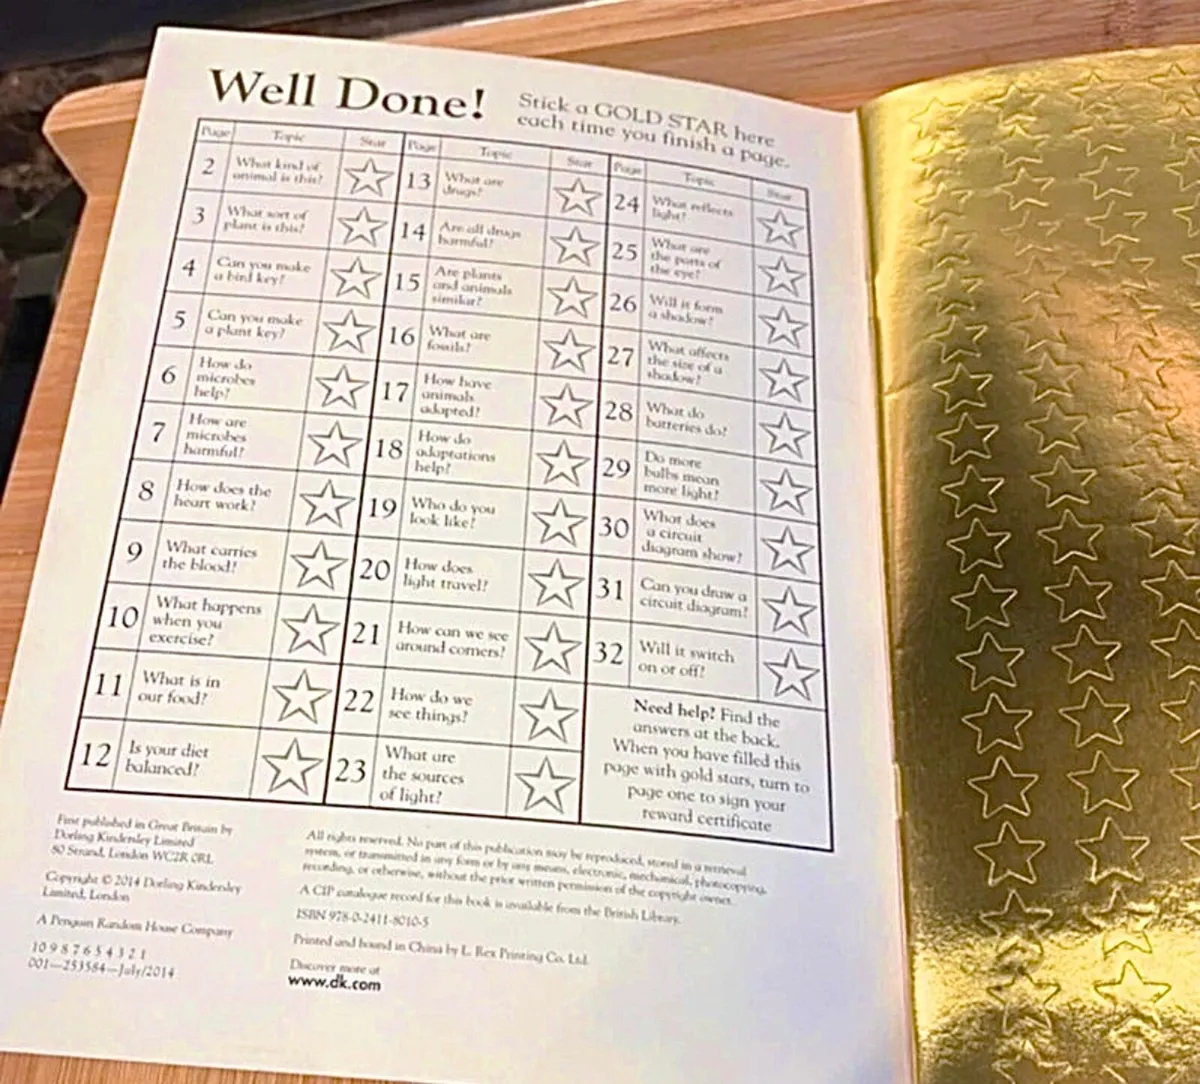 Well Done!
Stick a GOLD STAR here
each time you finish a page.
Page Topic Star
2 What kind of
animal is this?
3 What sort of
plant is this?
4 Can you make
a bird key?
5 Can you make
a plant key?
6 How do
microbes
help?
7 How are
microbes
harmful?
8 How does the
heart work?
9 What carries
the blood?
10 What happens
when you
exercise?
11 What is in
our food?
12 Is your diet
balanced?
Page Topic Star
13 What are
drugs?
14 Are all drugs
harmful?
15 Are plants
and animals
similar?
16 What are
fossils?
17 How have
animals
adapted?
18 How do
adaptations
help?
19 Who do you
look like?
20 How does
light travel?
21 How can we see
around corners?
22 How do we
see things?
23 What are
the sources
of light?
Page Topic Star
24 What reflects
light?
25 What are
the parts of
the eye?
26 Will it form
a shadow?
27 What affects
the size of a
shadow?
28 What do
batteries do?
29 Do more
bulbs mean
more light?
30 What does
a circuit
diagram show?
31 Can you draw a
circuit diagram?
32 Will it switch
on or off?
Need help? Find the
answers at the back.
When you have filled this
page with gold stars, turn to
page one to sign your
reward certificate
First published in Great Britain by
Dorling Kindersley Limited
80 Strand, London WC2R 0RL
Copyright © 2014 Dorling Kindersley
Limited, London
A Penguin Random House Company
10 9 8 7 6 5 4 3 2 1
001—253584—July/2014
All rights reserved. No part of this publication may be reproduced, stored in a retrieval
system, or transmitted in any form or by any means, electronic, mechanical, photocopying,
recording, or otherwise, without the prior written permission of the copyright owner.
A CIP catalogue record for this book is available from the British Library.
ISBN 978-0-2411-8010-5
Printed and bound in China by L. Rex Printing Co. Ltd.
Discover more at
www.dk.com